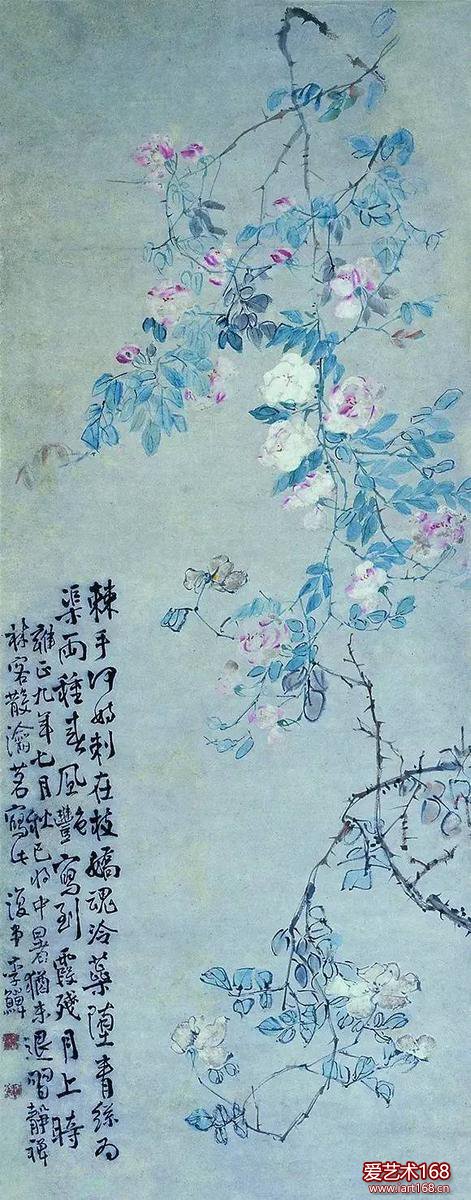 棘手何妨刺在枝嬌魂冷蘂墮青絲為
渠兩種春風艷寫到霞殘月上時
雍正九年七月秋已將中暑猶未退習靜禪
林客散瀹茗寫此 復堂李鱓
爱艺术168
www.iart168.cn